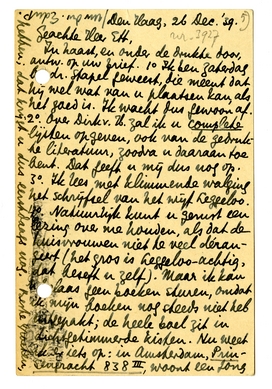 Den Haag, 26 Dec. '39.
Geachte Heer Ett,
In haast, en onder de drukte door
antw. op uw brief. 1o Ik ben zaterdag
dr. Stapel geweest, die meent dat
hij wel wat van u plaatsen kan als
het goed is. Ik wacht dus gewoon af.
2o. Over Dirk v. H. zal ik u complete
lijsten opgeven, ook van de gedruk-
te literatuur, zoodra u daaraan toe
bent. Dat geeft u mij dus nog op.
3o. Ik lees met klimmende walging
het schrijfsel van het wijf Keggeloo.
Natuurlijk kunt u gerust een
lezing over me houden, als dat de
huisvrouwen niet te veel deran-
geert (het gros is keggeloo-achtig,
dat beseft u zelf). Maar ik kan
laas geen boeken sturen, omdat
ik mijn boeken nog steeds niet heb
uitgepakt; de heele boel zit in
dichtgetimmerde kisten. Nu weet
u iets op: in Amsterdam, Prin-
sengracht 838 III, woont een jong